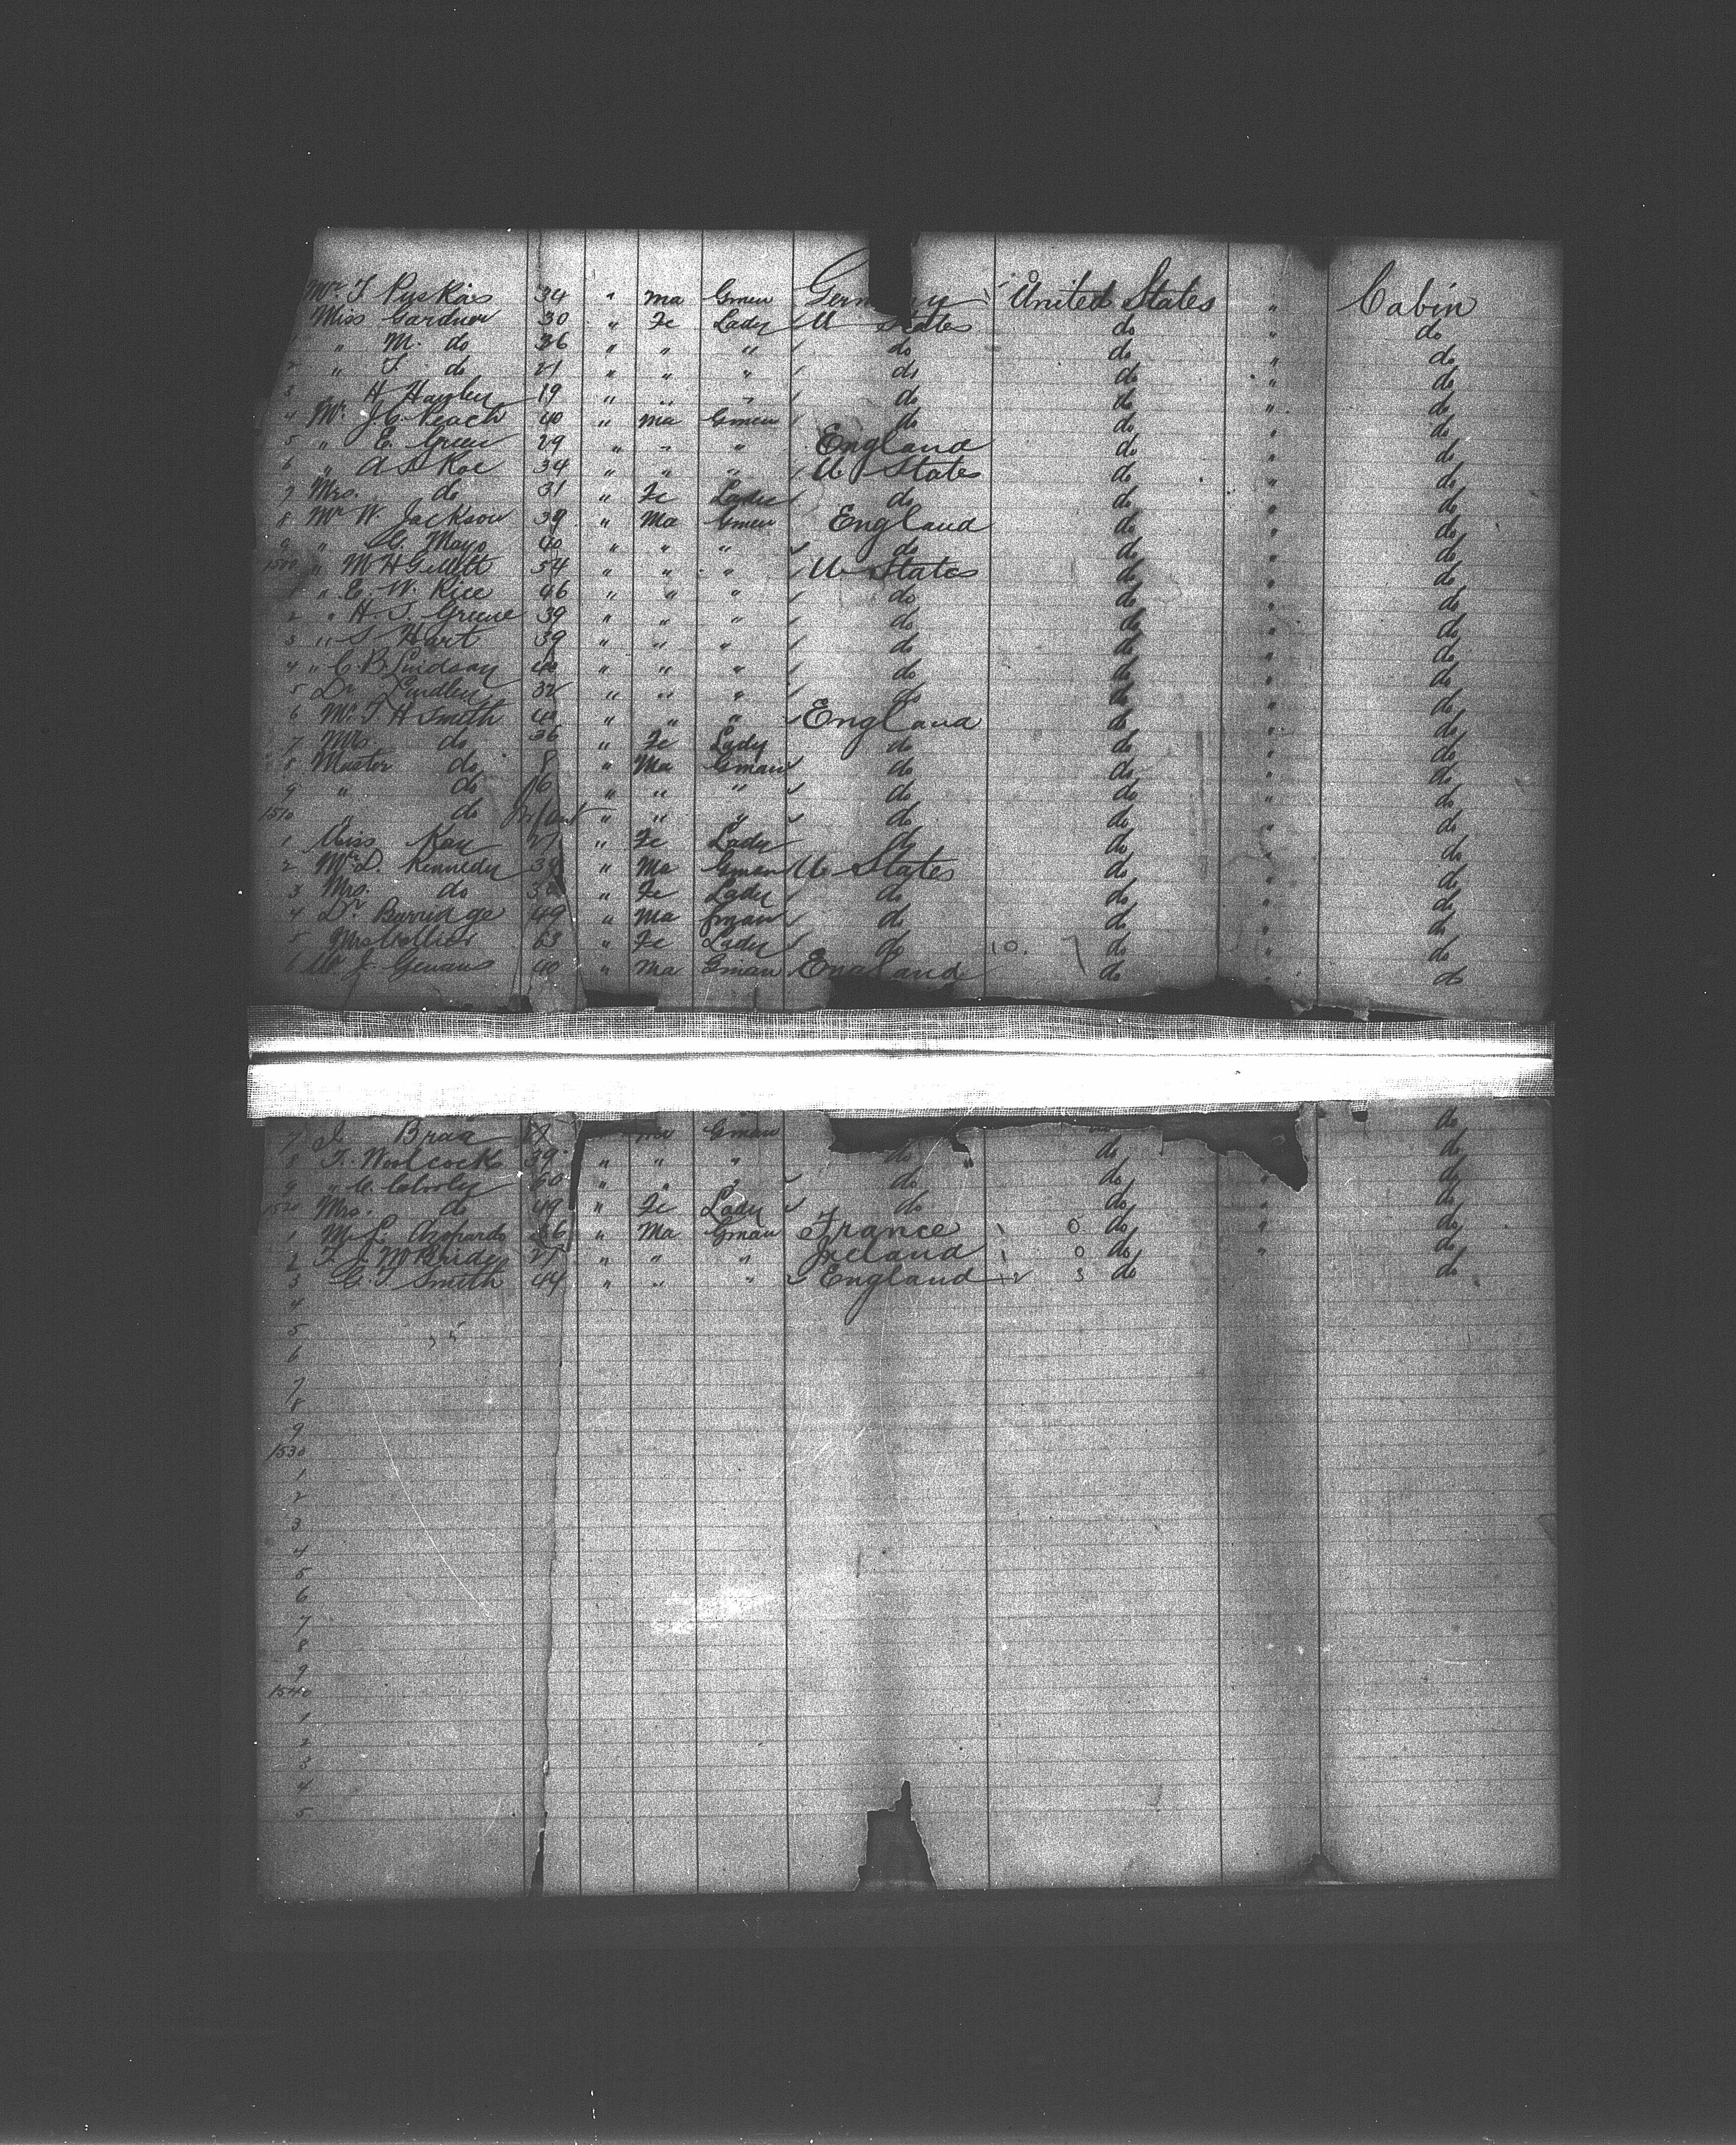 Mr. T Puskas 34 " Ma Gmen Germ y United States " Cabin
Miss Gardner 30 " Fe Lady U States do " do
" M. do 36 " " " do do " do
2 " T. do 21 " " " do do " do
3 " H 19 " " " do do " do
4 Mr. J.C. Peach 40 " Ma Gmen do do " do
5 " E. Green 29 " " " England do " do
6 " A S Koe 34 " " " U States do " do
7 Mrs. do 31 " Fe Ladie do do " do
8 Mr W. Jackson 39 " Ma Gmen England do " do
9 " C. Mayo 40 " " " do do " do
1500 " M H Gillett 54 " " " U States do " do
1 " E. W. Rice 46 " " " do do " do
2 " H. S. Greene 39 " " " do do " do
3 " S Hart 39 " " " do do " do
4 " C B Lindsay 40 " " " do do " do
5 Dr Lindley 32 " " " do do " do
6 Mr. T H Smith 40 " " " England do " do
7 Mrs. do 36 " Fe Lady do do " do
8 Master do 8 " Ma Gman do do " do
9 " do 6 " " " do do " do
1510 " do Infant " " " do do " do
1 Miss Kay 27 " Fe Lady do do " do
2 Mr D. Kennedy 39 " Ma Gman U States do " do
3 Mrs. do " Fe Lady do do " do
4 Dr Barringe 49 " Ma Gman do do " do
5 Mrs Collier 63 " Fe Lady do 10. do " do
6 J. Genans 40 " Ma Gman England do " do
7 J. Ma Gman do
8 T. Woolcock 39 " " " do do do
9 " C. 60 " " " do do " do
1520 Mrs. do 49 " Fe Lady do do do
1 Mr L. 36 " Ma Gman France 0 do " do
2 T. J. McBride 27 " " " Ireland 0 do " do
3 G. T. Smith 44 " " " England 3 do do
4
5
6
7
8
9
1530
1
2
3
4
5
6
7
8
9
1540
1
2
3
4
5